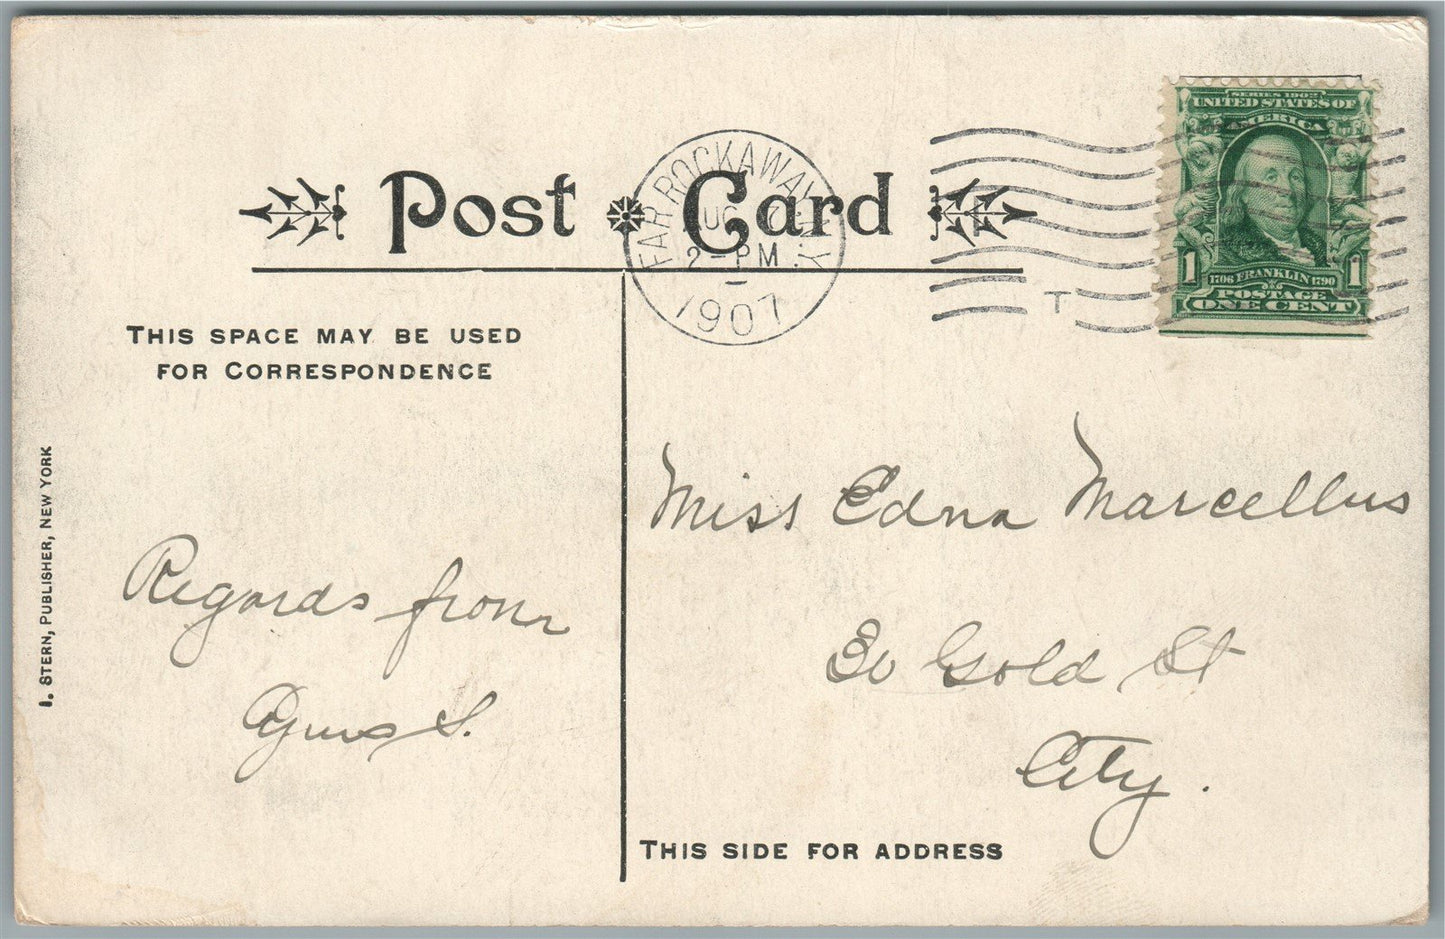 Post Card
FAR ROCKAWAY, N.Y.
2-PM
1907
T
SERIES 1902
UNITED STATES OF
AMERICA
1 1
1706 FRANKLIN 1790
POSTAGE
ONE CENT
THIS SPACE MAY BE USED
FOR CORRESPONDENCE
I. STERN, PUBLISHER, NEW YORK
Regards from
S.
Miss Edna Marcellus
30 Gold St
City.
THIS SIDE FOR ADDRESS